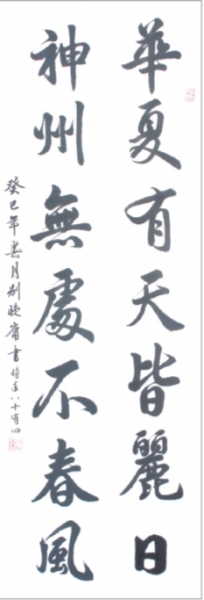 華夏有天皆麗日
神州無處不春風
癸巳年 月 曉 書時年八十有四